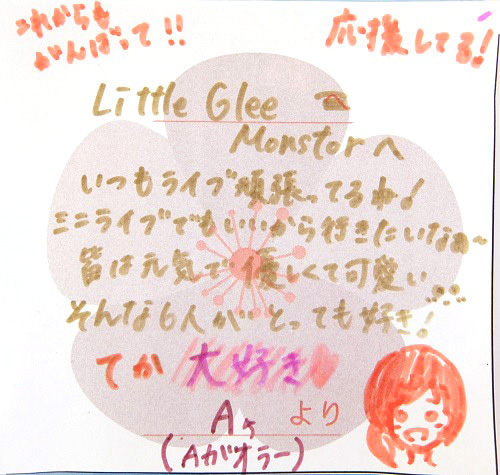 これからも
がんばって!!
応援してる!
Little Glee
Monstorへ
いつもライブ頑張ってるね!
ミニライブでもいいから行きたいなぁ~
皆は元気で優しくて可愛い
そんな6人がとっても好き!
てか 大好き
Aヶより
(Aガオラー)